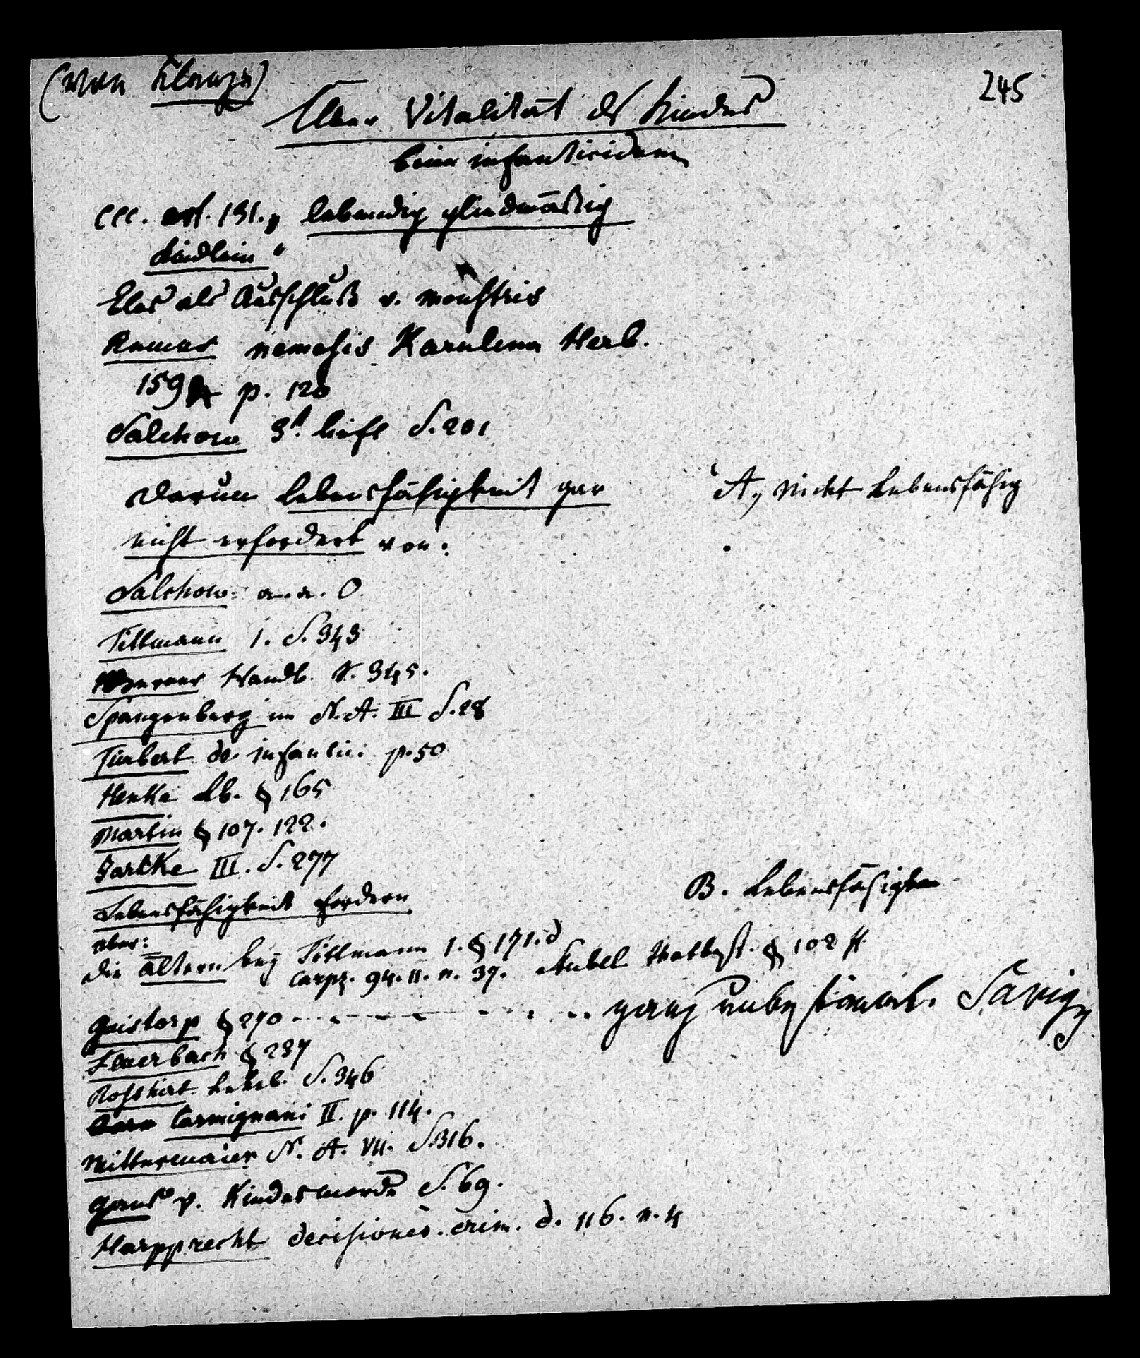 (von
245
Über Vitalität des Kindes
beim infanticidium
CCC. art. 131. „ lebendig gliedmäßig
Kindlein "
Also als Ausschluß v. monstris
Remus nemesis Karulina Herb.
159 p. 120
Salchow 3t. S. 201
Darum Lebensfähigkeit gar
A, nicht Lebensfähig
nicht erfordert von:
Salchow a. a. O
Tittmann 1. S. 343
Werner Handb. S. 345.
Spangenberg im N. A. III S. 28
de infantic: p. 50
Henke Lb. § 165
Martin § 107. 122.
Jarcke III. S. 277
Lebensfähigkeit fordern
B. Lebensfähigkeit
aber:
die ältern bey Tittmann 1. § 171. d
Carpz. q. 11. n. 37. Stübel Thatbest. § 102 ff
Quistorp § 270 ganz Savigny
Feuerbach § 237
Rosshirt Lehrb. S. 346
Carmignani II. p. 114.
Mittermaier N. A. VII. S. 316.
Gans v. Kindesmorde S. 69.
Harpprecht decisiones. crim. d. 116. n. 4